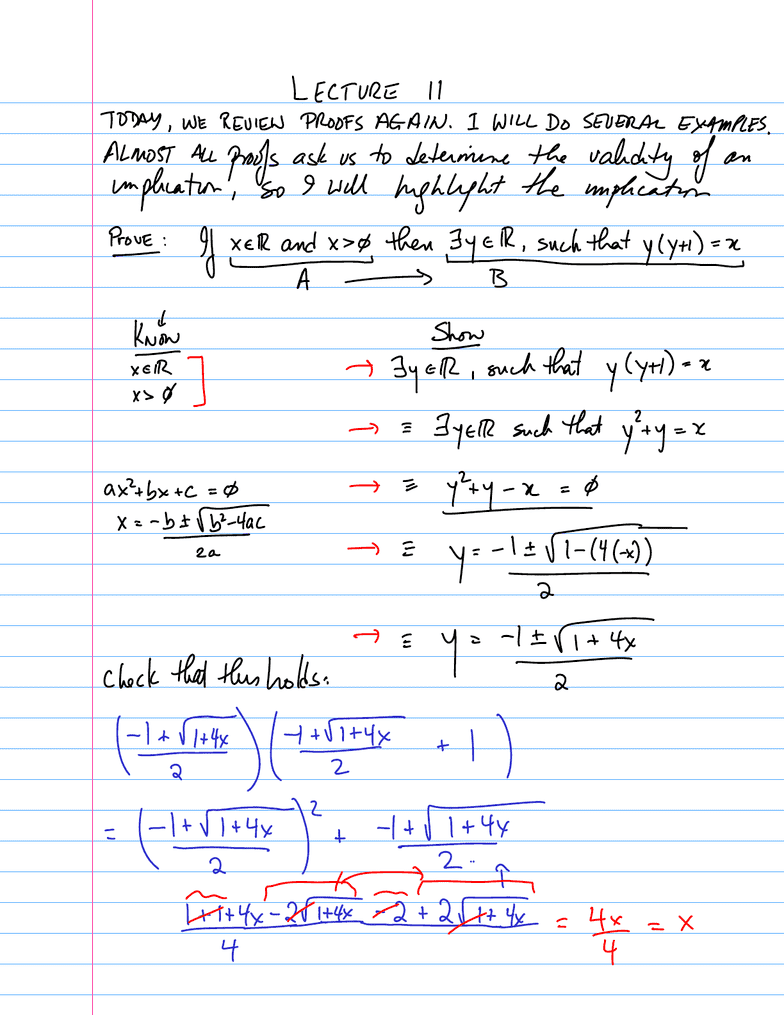 LECTURE 11
TODAY, WE REVIEW PROOFS AGAIN. I WILL DO SEVERAL EXAMPLES.
ALMOST ALL proofs ask us to determine the validity of an
implication, so I will highlight the implication
PROVE: If x∈ℝ and x>∅ then ∃y∈ℝ, such that y(y+1)=x
A → B
↓
KNOW Show
x∈ℝ → ∃y∈ℝ, such that y(y+1)=x
x>∅
→ ≡ ∃y∈ℝ such that y²+y=x
ax²+bx+c=∅ → ≡ y²+y-x=∅
x = (-b±√(b²-4ac))/2a → ≡ y = (-1±√(1-(4(-x))))/2
→ ≡ y = (-1±√(1+4x))/2
Check that this holds:
((-1+√(1+4x))/2)((-1+√(1+4x))/2 + 1)
= ((-1+√(1+4x))/2)² + (-1+√(1+4x))/2
(1+1+4x-2√(1+4x) -2+2√(1+4x))/4 = 4x/4 = x